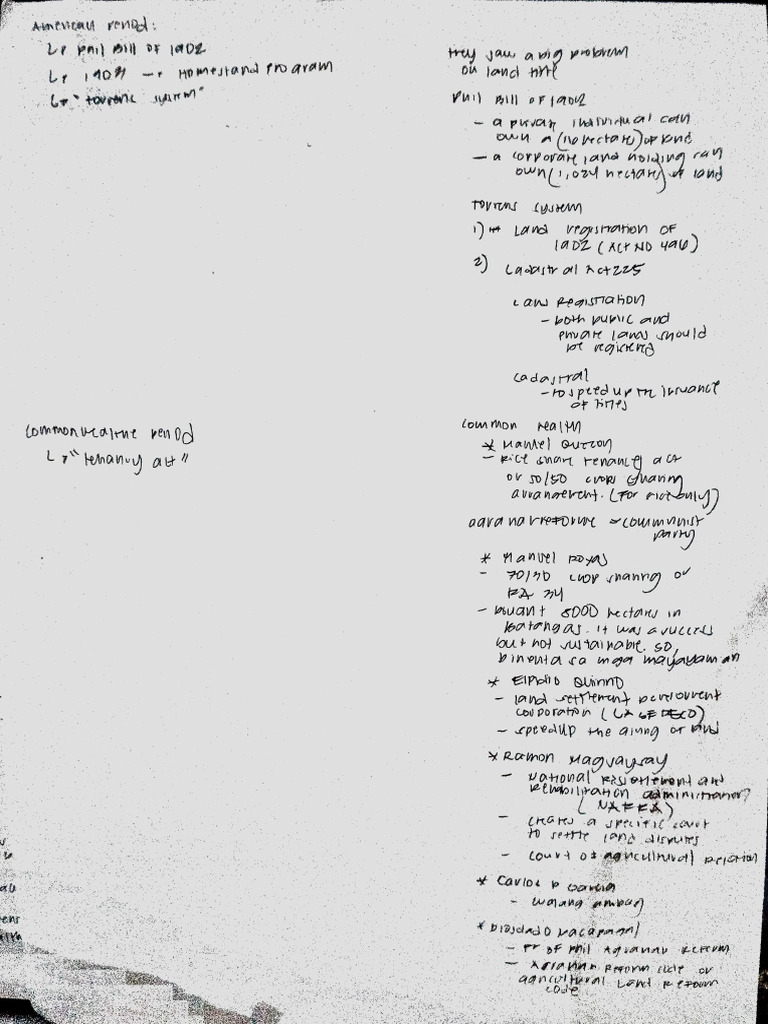 American period:
↳ Phil Bill of 1902
↳ 1903 → Homestand Program
↳ "torrens system"
they saw a big problem
on land title
Phil Bill of 1902
- a private individual can
own a ( hectares) of land
- a corporate land holding can
own (1,024 hectares) of land
Torrens system
1) Land registration of
1902 (Act No 496)
2) Cadastral Act 225
Land Registration
- both public and
private lands should
be registered
Cadastral
- to speed up the issuance
of titles
Commonwealthe period
↳ "tenancy act"
Common wealth
* Manuel Quezon
- Rice share tenancy act
or 50/50 crops sharing
arrangement. (for rice only)
= communist
party
* Manuel Roxas
- 70/30 crop sharing or
RA 34
- bought 8000 hectares in
Batangas. it was a success
but not sustainable. so,
binenta sa mga mayayaman
* Elpidio Quirino
- land settlement development
corporation (LASEDECO)
- speedup the giving of land
* Ramon Magsaysay
- National Resettlement and
Rehabilitation administration
(NARRA)
- creates a specific court
to settle land disputes
- court of agricultural relation
* Carlos P Garcia
- walang ambag
* Diosdado Macapagal
- of Phil Agrarian Reform
- Agrarian Reform code or
agricultural Land Reform
code